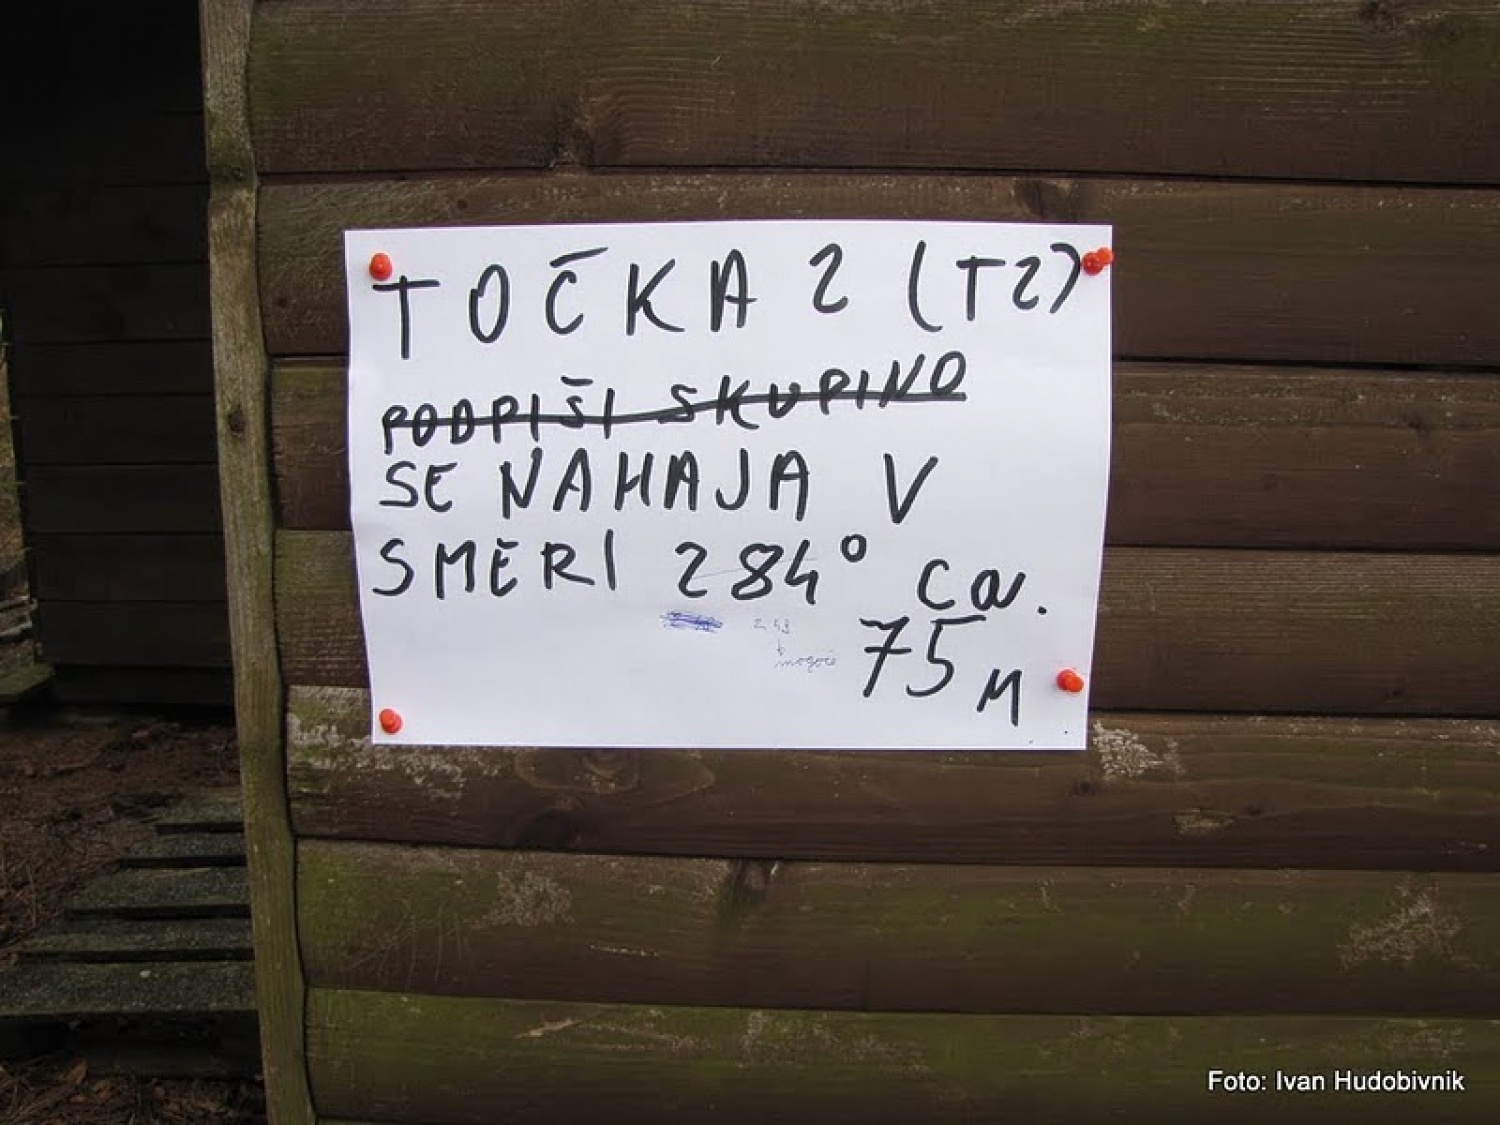 TOČKA 2 (T2)
PODPIŠI SKUPINO
SE NAHAJA V
SMERI 284° ca.
75 M
mogoče
Foto: Ivan Hudobivnik